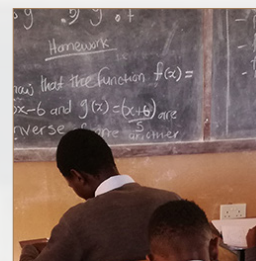 Homework
that the function f(x) =
x-6 and g(x) = (x+6) are
5
nverse of one another